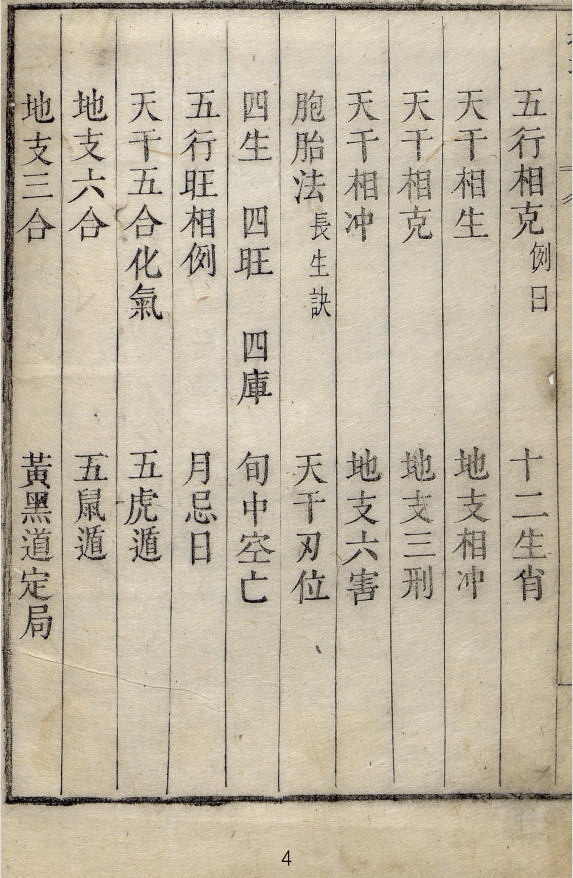 五行相克例曰 十二生肖
天干相生 地支相冲
天干相克 地支三刑
天干相冲 地支六害
胞胎法長生訣 天干刃位
四生 四旺 四庫 旬中空亡
五行旺相例 月忌日
天干五合化氣 五虎遁
地支六合 五鼠遁
地支三合 黃黑道定局
4